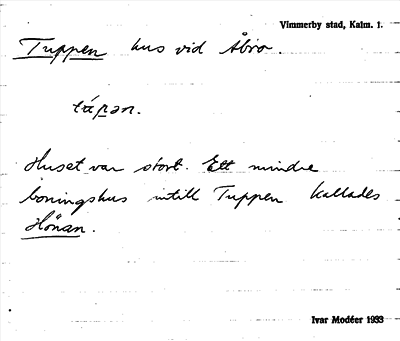 Vimmerby stad, Kalm. l.
Tuppen hus vid Åbro.
tápən.
Huset var stort. Ett mindre
boningshus intill Tuppen kallades
Hönan.
Ivar Modéer 1933